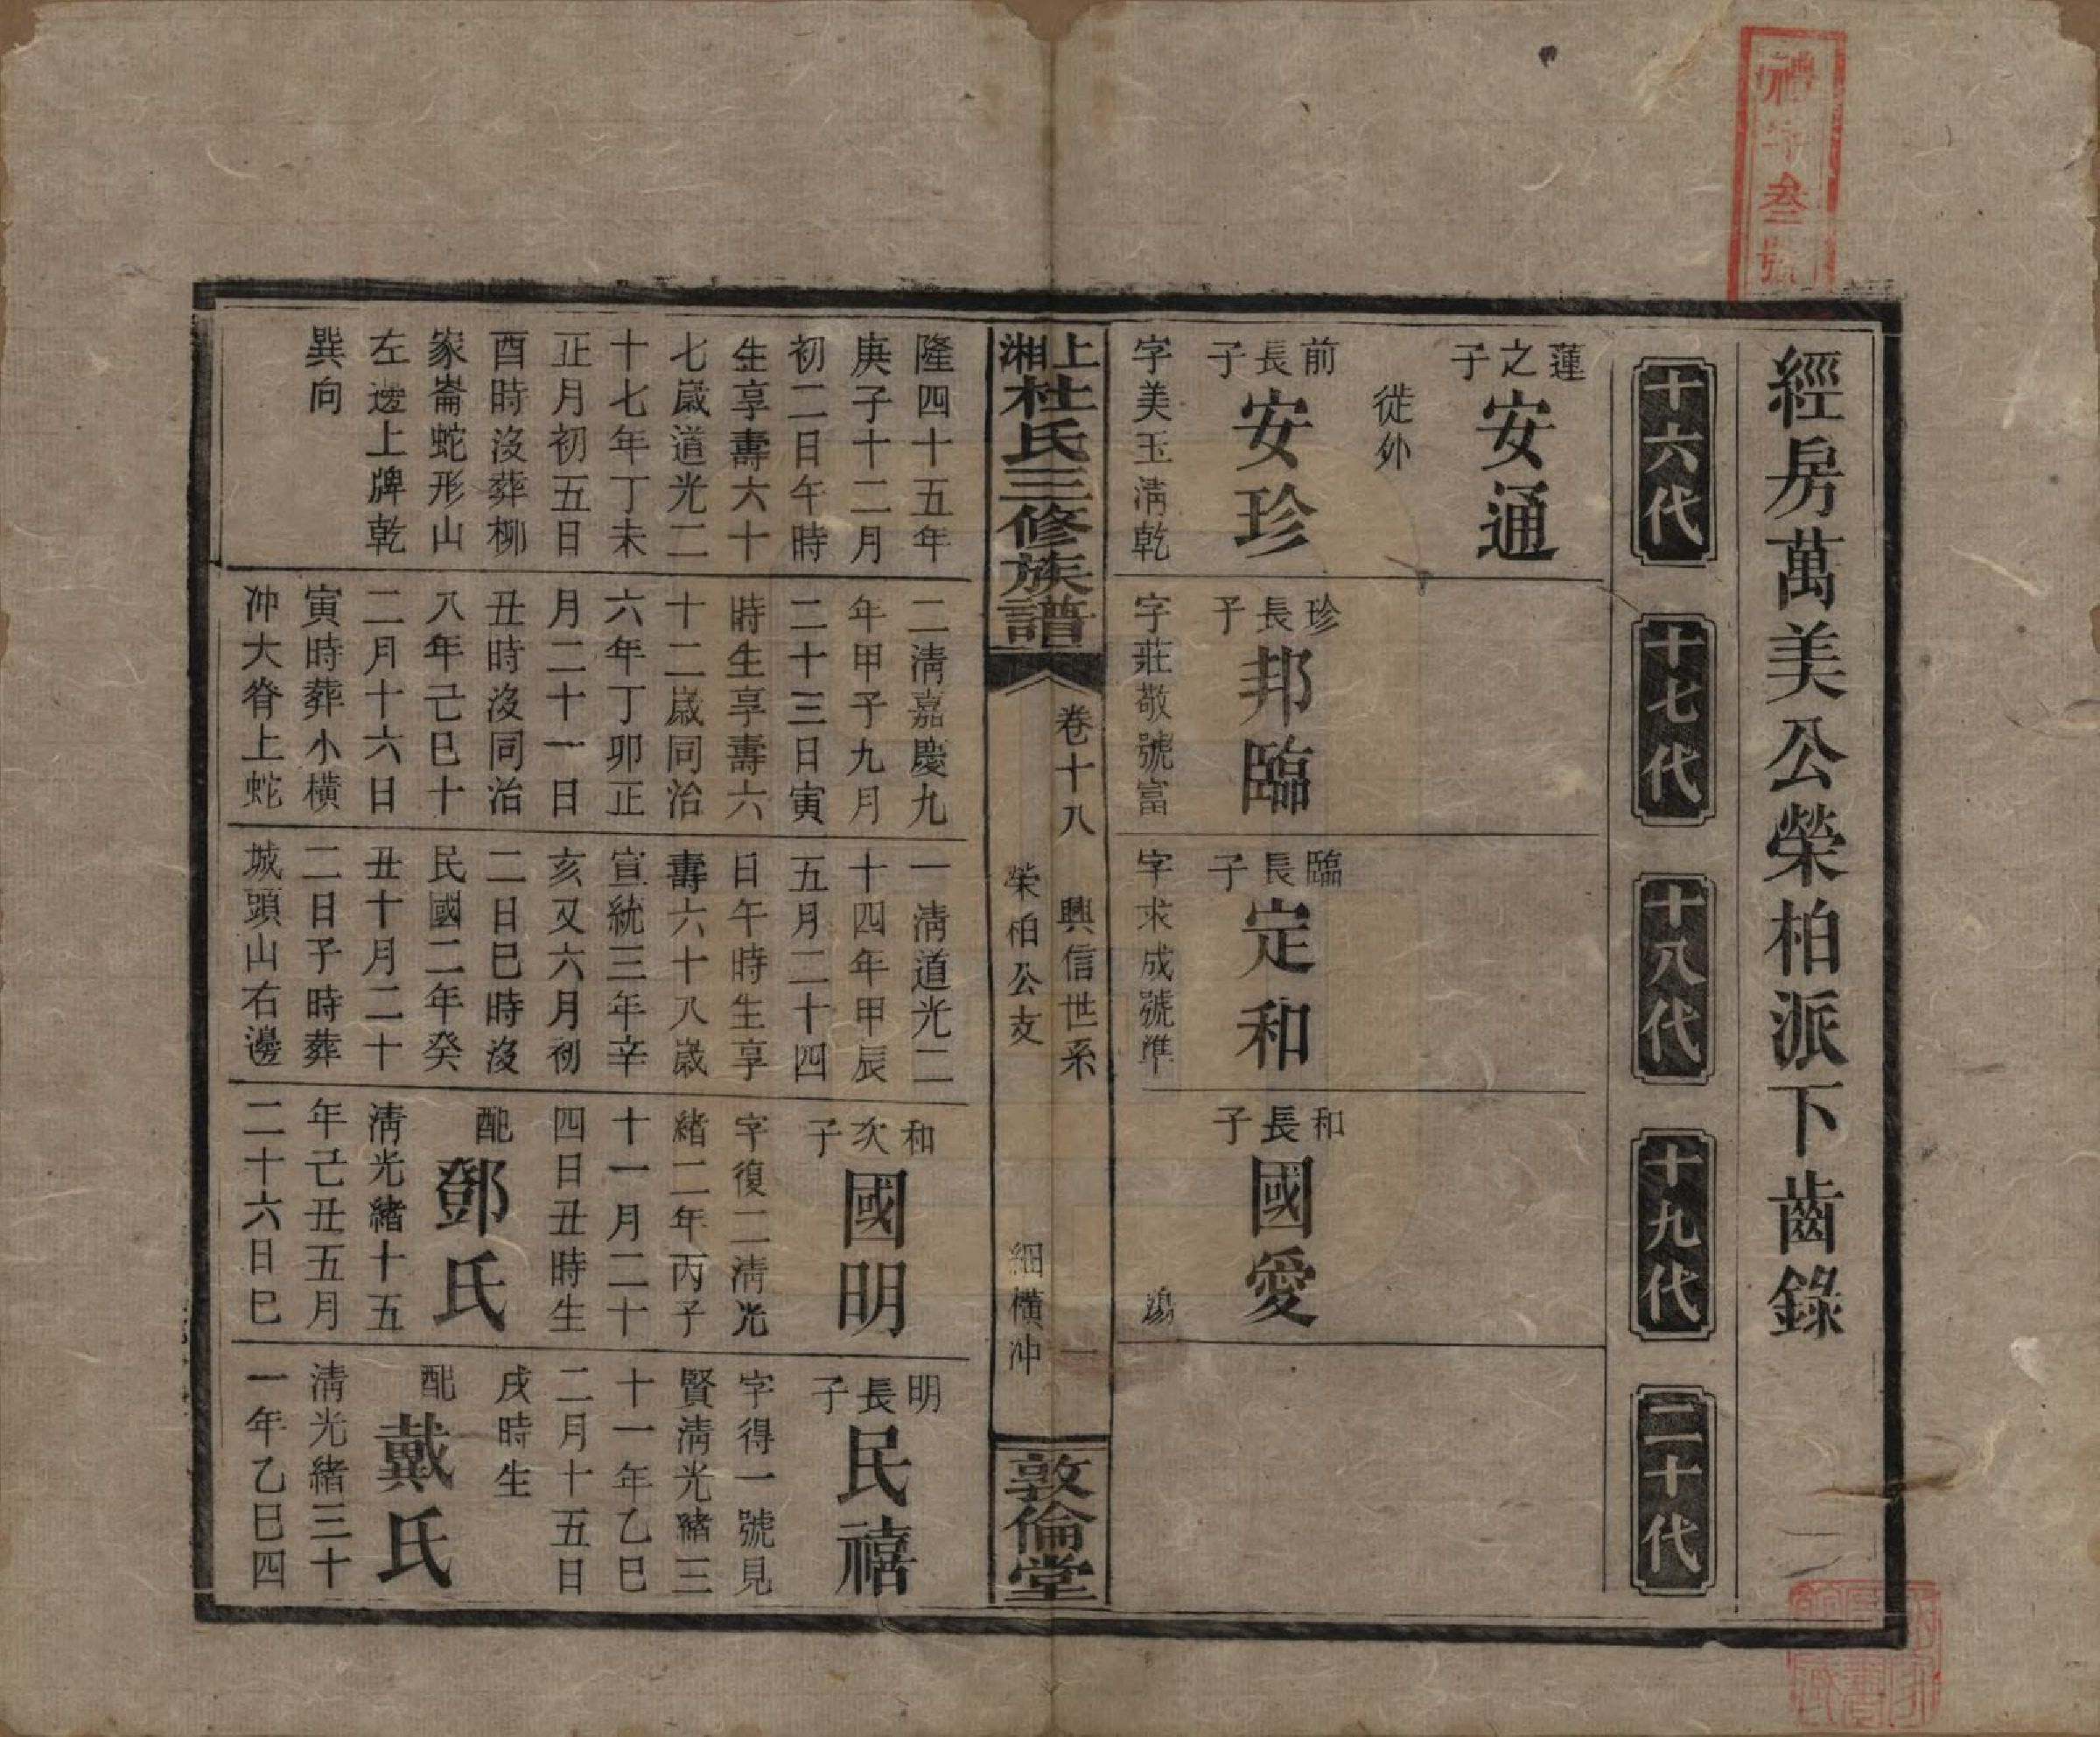 經房萬美公榮柏派下齒錄
十六代
十七代
十八代
十九代
二十代
蓮之子
安通
徙外
前長子
安珍
字美玉清乾
珍長子
邦臨
字莊敬號富
臨長子
定和
字求成號準
和長子
國愛
殤
上湘杜氏三修族譜
卷十八 興信世系 一
榮柏公支 細橫冲
敦倫堂
隆四十五年
庚子十二月
初二日午時
生享壽六十
七歲道光二
十七年丁未
正月初五日
酉時沒葬柳
家崙蛇形山
左邊上牌乾
巽向
二清嘉慶九
年甲子九月
二十三日寅
時生享壽六
十二歲同治
六年丁卯正
月二十一日
丑時沒同治
八年己巳十
二月十六日
寅時葬小橫
冲大脊上蛇
一清道光二
十四年甲辰
五月二十四
日午時生享
壽六十八歲
宣統三年辛
亥又六月初
二日巳時沒
民國二年癸
丑十月二十
二日子時葬
城頭山右邊
和次子
國明
字復二清光
緒二年丙子
十一月二十
四日丑時生
配
鄧氏
清光緒十五
年己丑五月
二十六日巳
明長子
民禧
字得一號見
賢清光緒三
十一年乙巳
二月十五日
戌時生
配
戴氏
清光緒三十
一年乙巳四